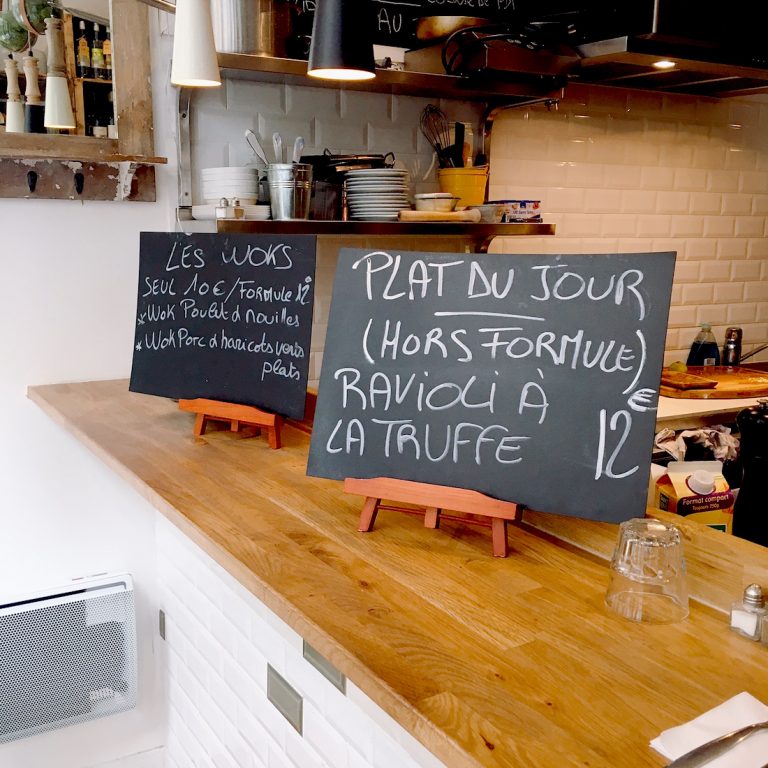 AU
LES WOKS
SEUL 10€/FORMULE 12
* Wok Poulet d nouilles
* Wok Porc d haricots verts
plats
PLAT DU JOUR
(HORS FORMULE)
RAVIOLI À
LA TRUFFE 12€
Format compact
Toujours 750g